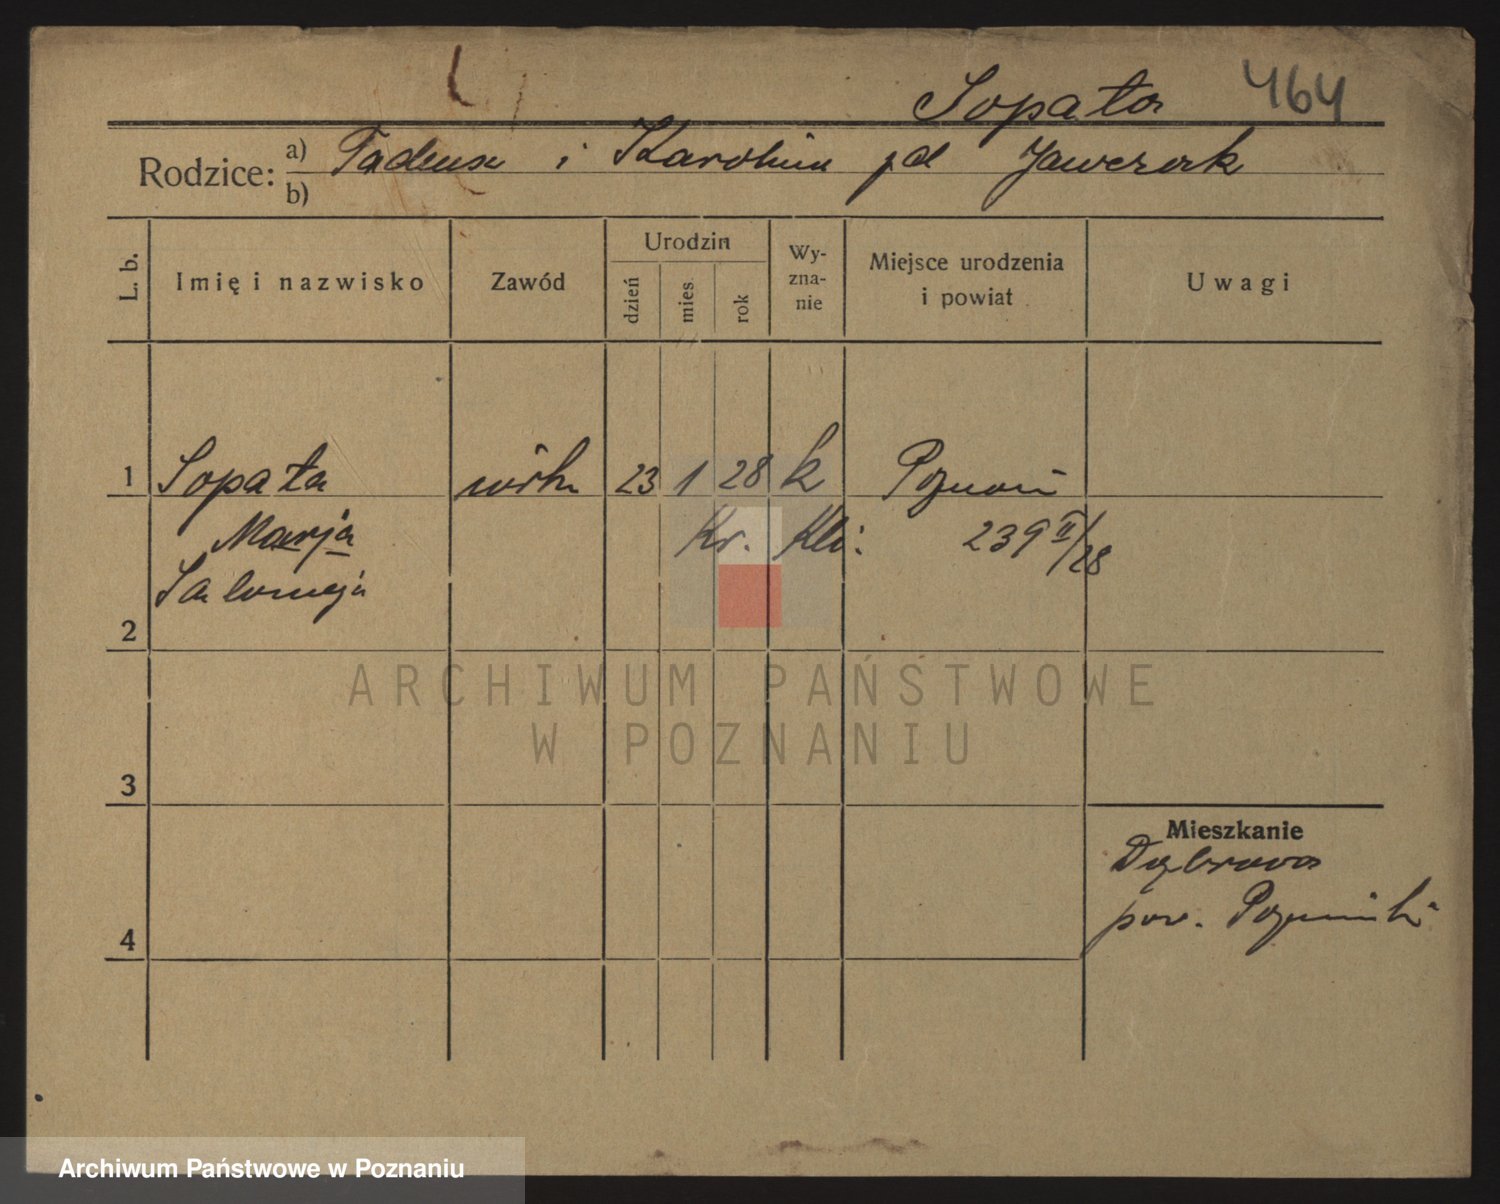 Sopata 464
Rodzice: a) Tadeusz i Karolina pd Jawczak
b)
L. b. Imię i nazwisko Zawód Urodzin dzień mies. rok Wy-zna-nie Miejsce urodzenia i powiat Uwagi
1 Sopata córka 23 1 28 k Poznań
Marja Kr. Kli. 239 II/28
Salomeja
2
ARCHIWUM PAŃSTWOWE
W POZNANIU
3
Mieszkanie
Dąbrowa
pow. Poznański
4
Archiwum Państwowe w Poznaniu